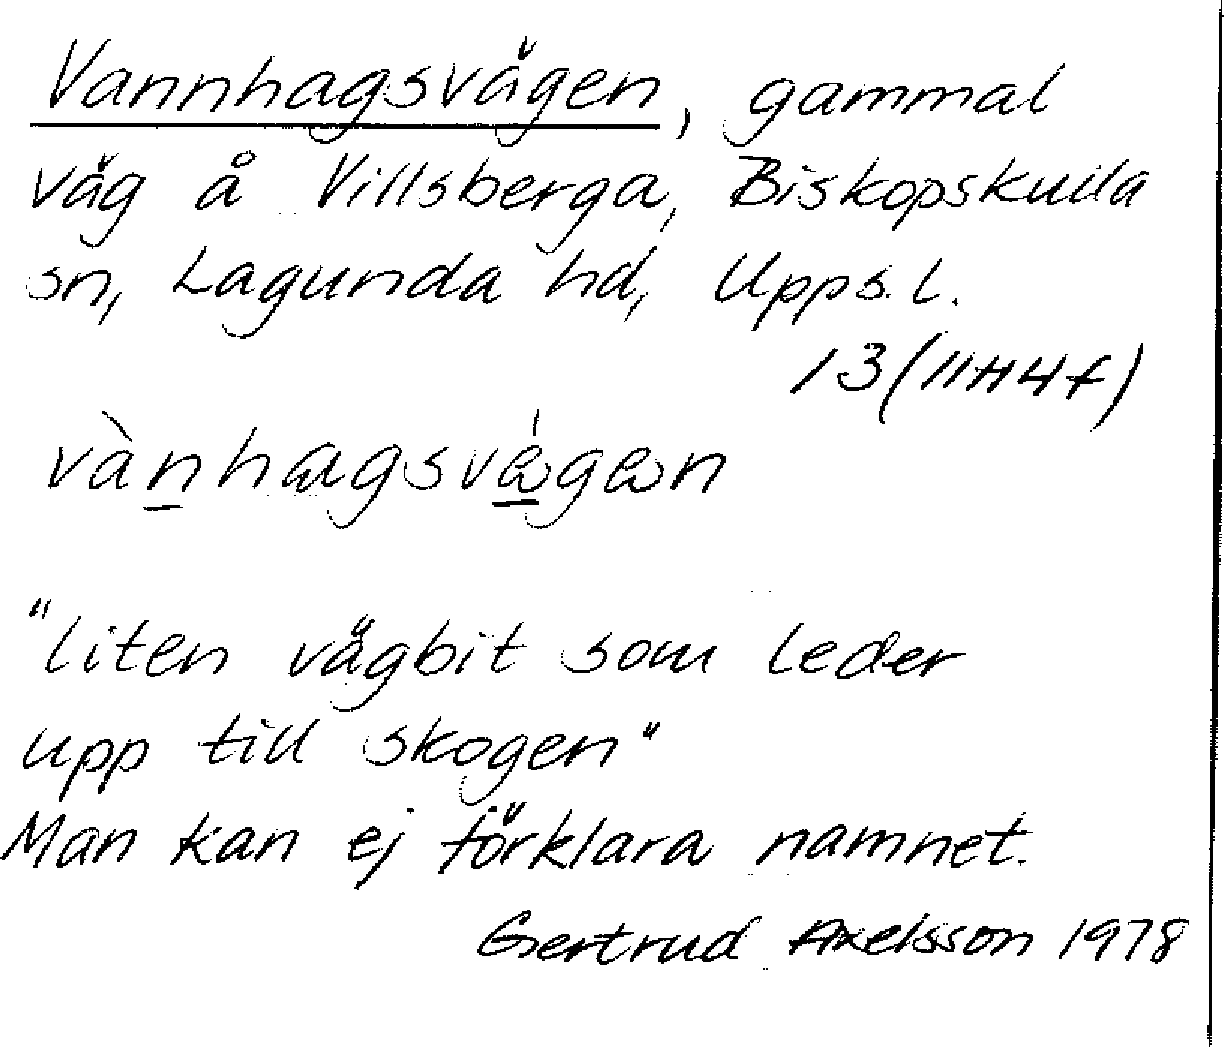 Vannhagsvägen, gammal
väg å Villsberga, Biskopskulla
sn, Lagunda hd, Upps. l.
13 (11H4f)
vànhagsvǝ́gǝn
"liten vägbit som leder
upp till skogen"
Man kan ej förklara namnet.
Gertrud Axelsson 1978